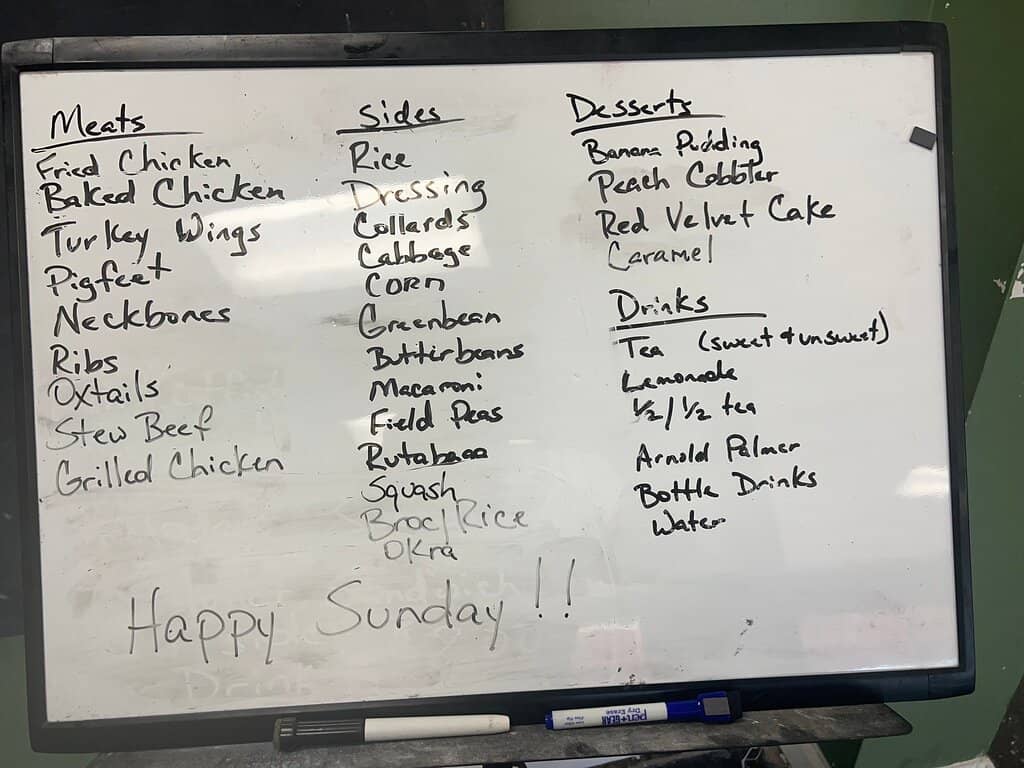 Meats
Fried Chicken
Baked Chicken
Turkey Wings
Pigfeet
Neckbones
Ribs
Oxtails
Stew Beef
Grilled Chicken
Sides
Rice
Dressing
Collards
Cabbage
CORN
Greenbean
Butterbeans
Macaroni
Field Peas
Rutabaga
Squash
Broc/Rice
OKra
Desserts
Banana Pudding
Peach Cobbler
Red Velvet Cake
Caramel
Drinks
Tea (sweet & unsweet)
Lemonade
1/2 / 1/2 tea
Arnold Palmer
Bottle Drinks
Water
Happy Sunday!!
pen+GEAR
Dry Erase